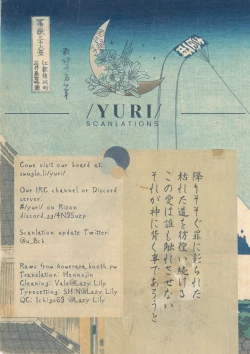 /YURI/
SCANLATIONS
Come visit our board at:
Our IRC channel or Discord
server:
#/yuri/ on Rizon
discord.gg/4N95uzp
Scanlation update Twitter:
@u_Sch
Raws from
Translation:
Cleaning: Vale@Lazy Lily
Typesetting: SHiN@Lazy Lily
QC: Ichigo69 @Lazy Lily
降りそそぐ罪に彩られた
枯れた道を彷徨い続ける
この愛は誰も触れさせない
それが神に背く事であろうと